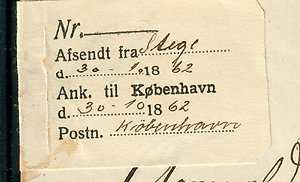 Nr.
Afsendt fra Stege
d. 30 - 10. 18 62
Ank. til København
d. 30 - 10 18 62
Postn.Köbenhavn